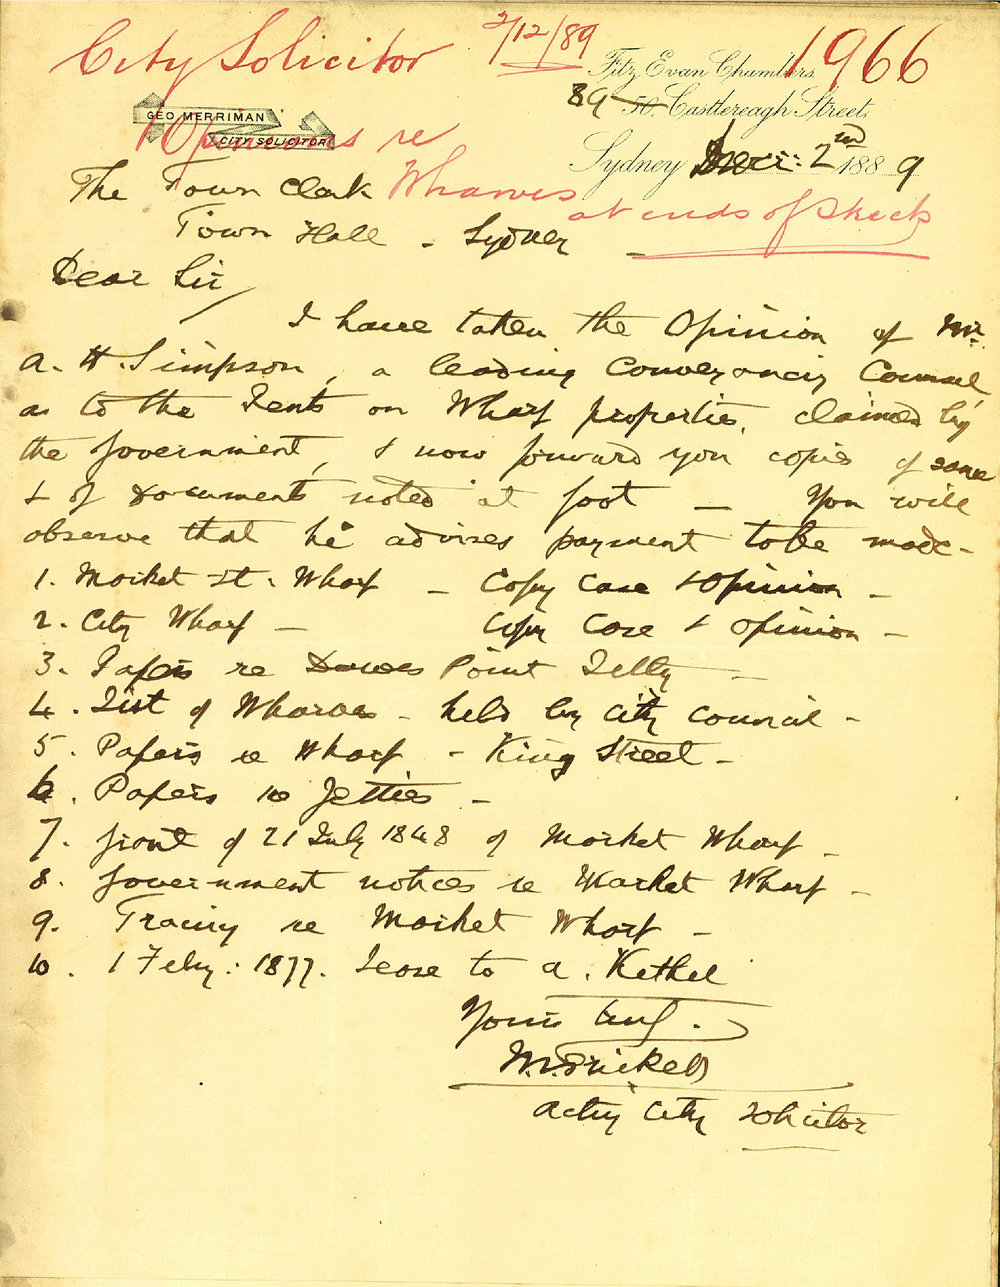 City Solicitor 2/12/89 1966
Fitz Evan Chambers
89 50. Castlereagh Street,
GEO MERRIMAN
CITY SOLICITOR
Opinions re
Sydney Dec: 2nd 1889
The Town Clerk Wharves
at ends of Streets
Town Hall - Sydney -
Dear Sir
I have taken the Opinion of Mr.
A. H. Simpson, a leading Conveyancing Counsel,
as to the Rents on Wharf properties, claimed by
the Government, & now forward you copies of same
& of documents noted at foot — You will
observe that he advises payment to be made -
1. Market St. Wharf - Copy Case & Opinion -
2. City Wharf - Copy Case & opinion -
3. Papers re Dawes Point Jetty -
4. List of Wharves - held by City Council -
5. Papers re Wharf - King Street -
6. Papers re Jetties -
7. Grant of 21 July 1848 of Market Wharf -
8. Government notices re Market Wharf -
9. Tracing re Market Wharf -
10. 1 Feby: 1877. Lease to A. Kethel
Yours truly.
Acting City Solicitor